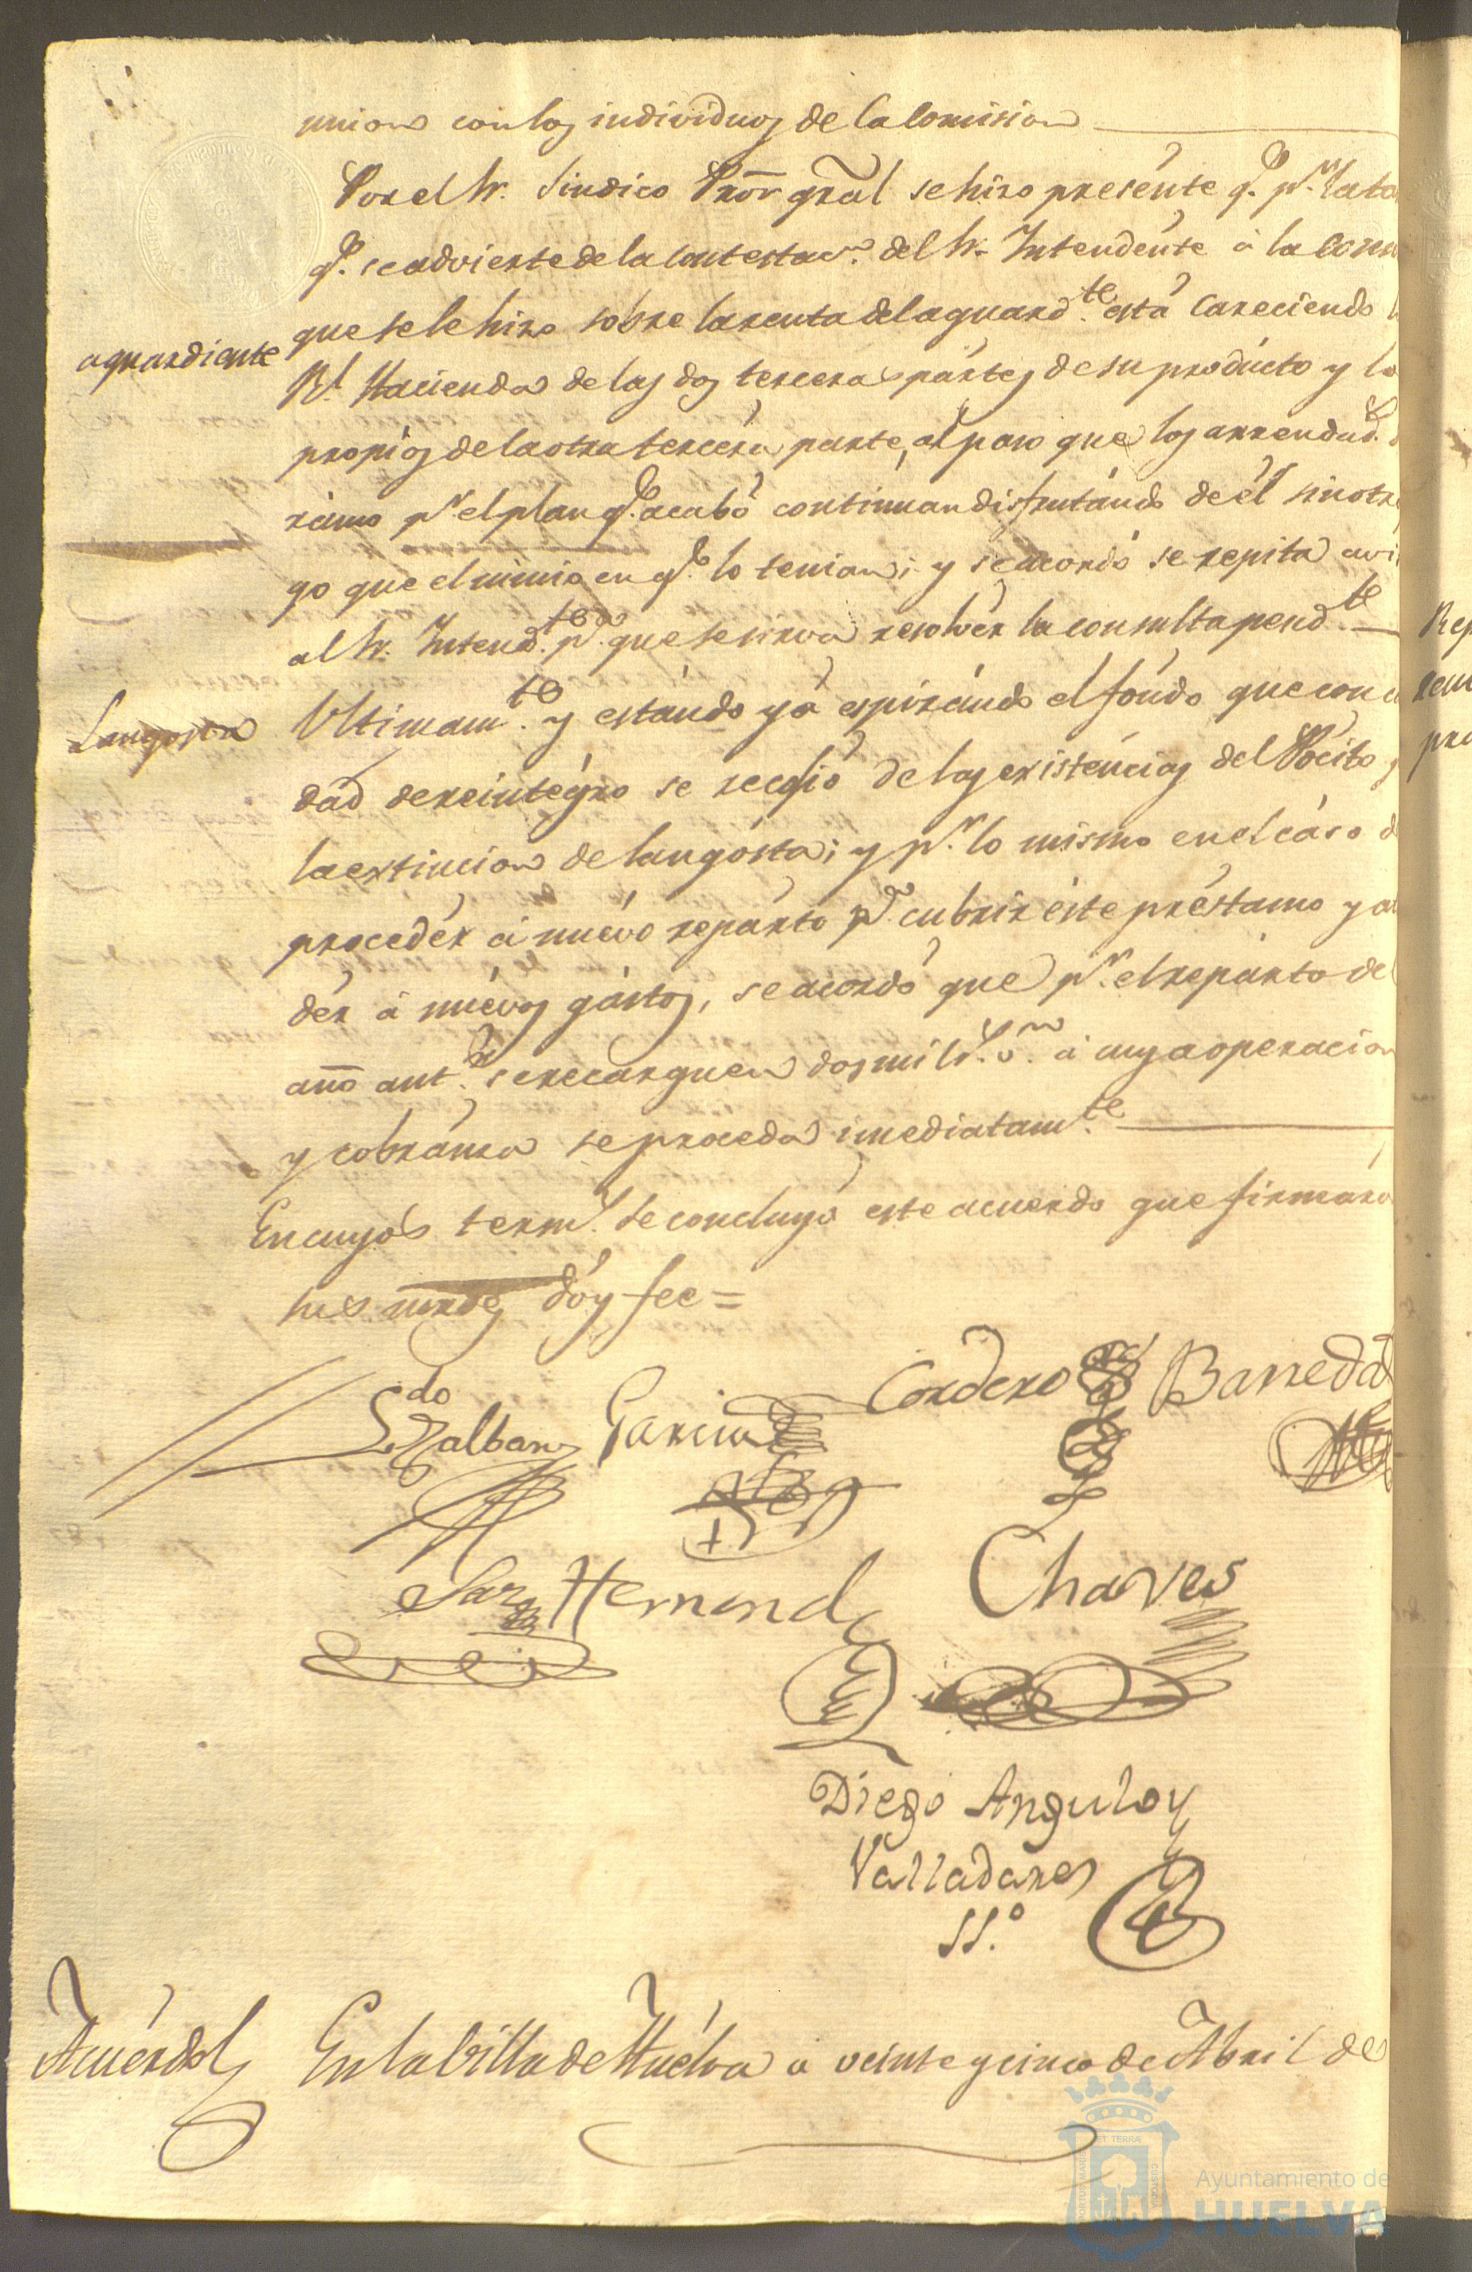 union con los individuos de la Comision
Por el Sr. Sindico Pror gral se hizo presente q.e p.r la ta
q.e se advierte de la contestac.n del Sr. Intendente á la con
que se le hizo sobre la renta del aguard.te está careciendo l
aguardiente
Rl. Hacienda de las dos terceras partes de su producto y lo
propios de la otra tercera parte, al paso que los arrendad.s
ramo p.r el plan q.e acabó continuan disfrutándo de él sin otro
go que el mimo en q.e lo tenian; y se acordó se repita avi
al Sr. Intend.te p.a que se sirva resolver la consulta pend.te
Langosta
Ultimam.te y estándo yá espirándo el fóndo que con c
dad de reintégro se recojió de las existéncias del Pócito
la extincion de langósta; y p.r lo mismo en el cáso d
procedér á nuévo repárto p.a cubrir éste préstamo y a
dér á nuévos gástos, se acordó que p.r el repárto del
año ant.r se recarguen dos mil r.s v.n á cuya operacion
y cobránza se proceda imediatam.te
En cuyos term.s se concluyó este acuerdo que firmaro
sus mrdes dóy fee =
L.do Zalban Garcia Cordero Barreda
Saez Hernand.z Chaves
Diego Angulo y
Valladares
SS.º
Acuérdo En la Villa de Huélva a veinte y cinco de Abril de
Rep
pra
ET TERRÆ
Ayuntamiento de
HUELVA